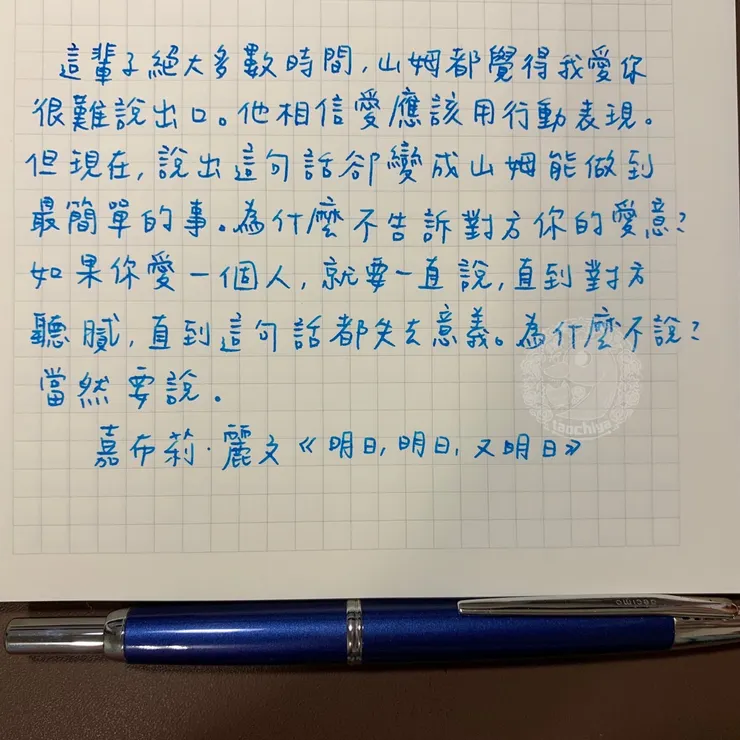 這輩子絕大多數時間,山姆都覺得我愛你
很難說出口。他相信愛應該用行動表現。
但現在,說出這句話卻變成山姆能做到
最簡單的事。為什麼不告訴對方你的愛意?
如果你愛一個人,就要一直說,直到對方
聽膩,直到這句話都失去意義。為什麼不說?
當然要說。
嘉布莉·麗文《明日,明日,又明日》
taochiya
decimo